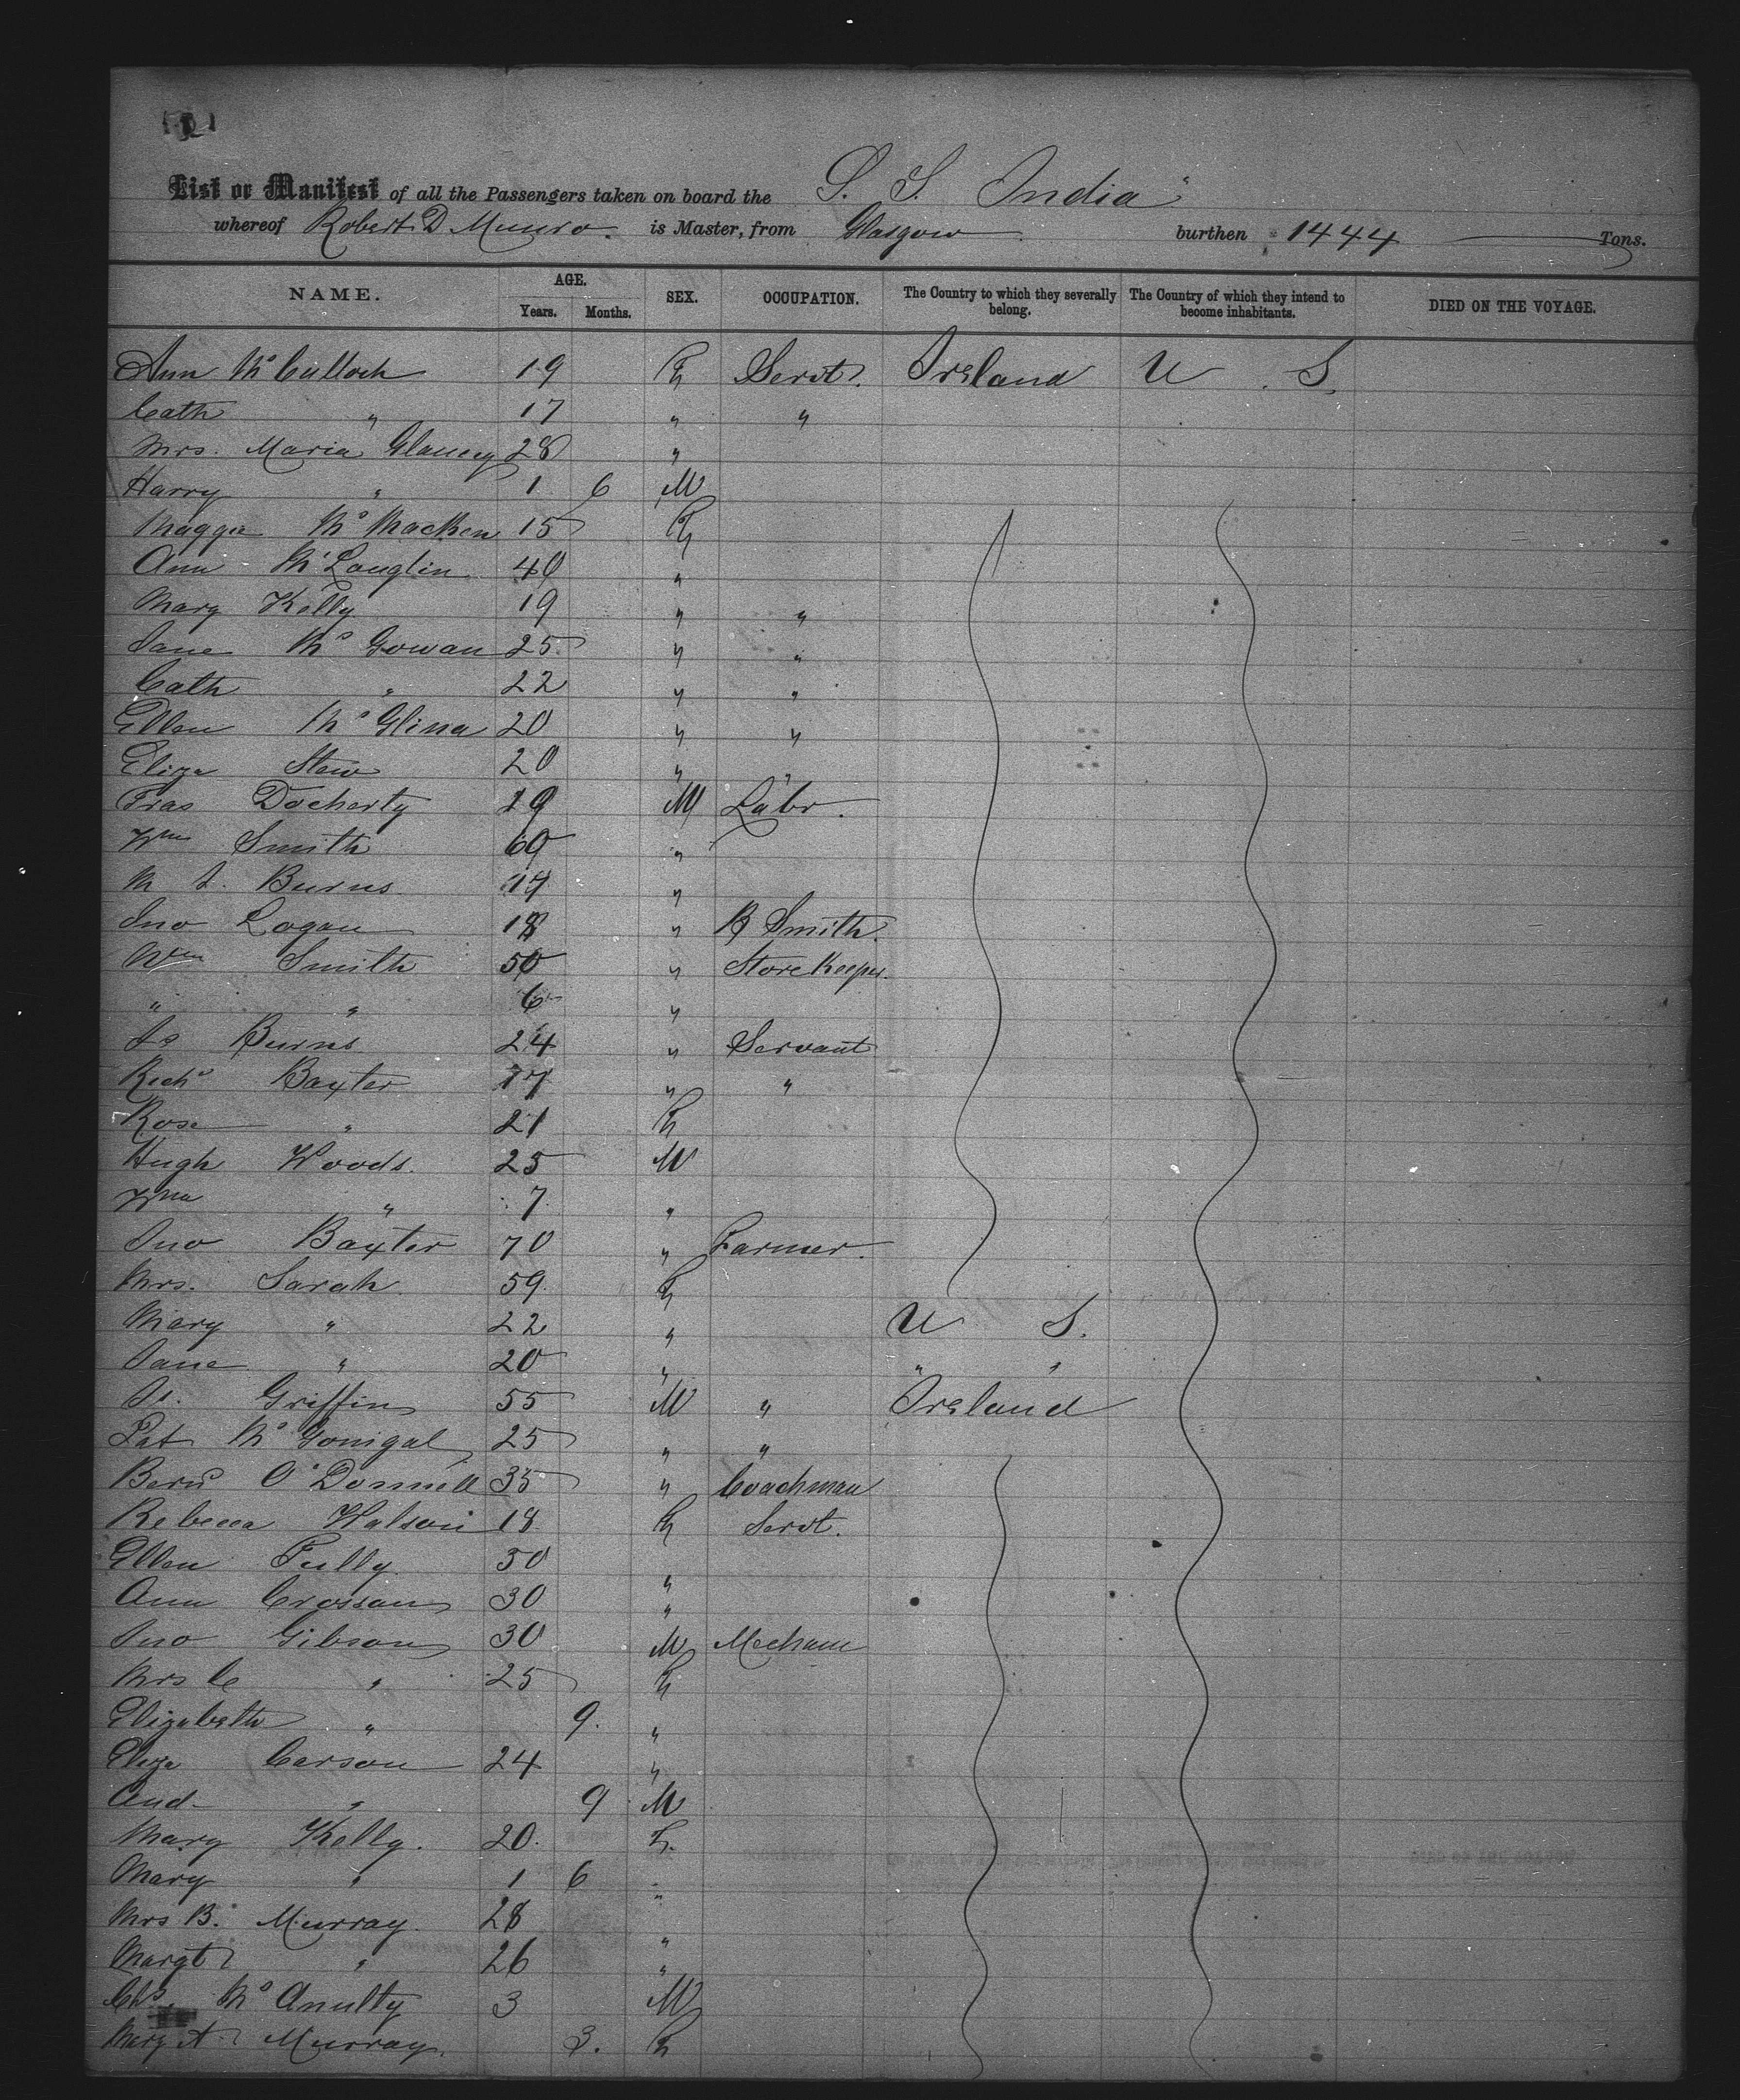 List or Manifest of all the Passengers taken on board the S. S. India
whereof Robert D Munro. is Master, from Glasgow burthen 1444 Tons.
NAME. AGE. Years. Months. SEX. OCCUPATION. The Country to which they severally belong. The Country of which they intend to become inhabitants. DIED ON THE VOYAGE.
Ann McCulloch 19 F Servt. Ireland U S
Cath " 17 " "
Mrs. Maria Glancy 28 "
Harry " 1 6 M
Maggie McMacken 15 F
Ann McLauglin 40 "
Mary Kelly 19 " "
Jane McGowan 25 " "
Cath " 22 " "
Ellen McGlina 20 " "
Eliza Stew 20 " "
Fras Docherty 29 M Labr.
Wm Smith 60 "
M J. Burns 19 "
Jno Logan 18 " B Smith.
Wm Smith 50 " Store Keeper.
" " 6 "
Js Burns 24 " Servant
Richd Baxter 17 " "
Rose " 21 F
Hugh Woods. 25 M
Wm " 7 "
Jno Baxter 70 " Farmer.
Mrs. Sarah 59 F
Mary " 22 " U S.
Jane " 20 " " "
Js. Griffin 55 M " Ireland
Pat McGonigal 25 " "
Bernd O'Donnell 35 " Coachman
Rebecca Watson 18 F Servt.
Ellen Tully 50 "
Ann Crossan 30 "
Jno Gibson 30 M Mechanic
Mrs C " 25 F
Elizabeth " 9. "
Eliza Carson 24 "
And " 9 M
Mary Kelly. 20. F.
Mary " 1 6 "
Mrs B. Murray. 28 "
Margt " 26 "
Chs. McAnulty 3 M
Mary A Murray. 3. F